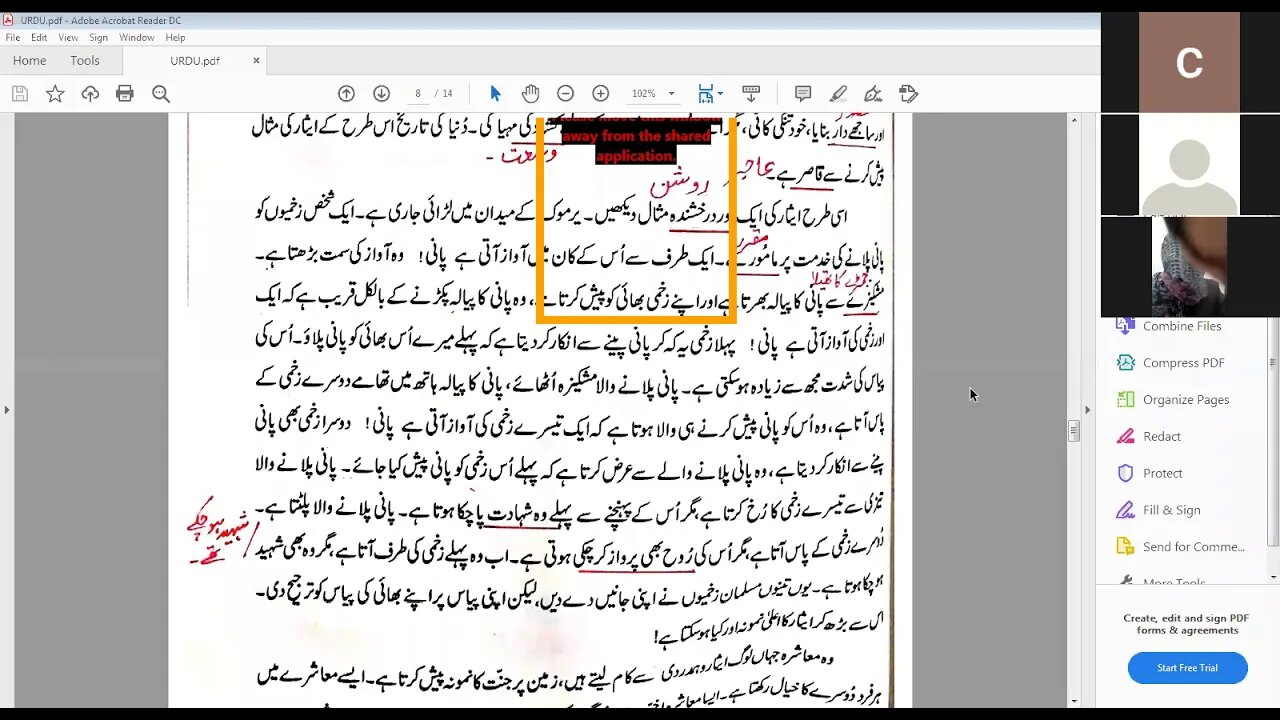 URDU.pdf - Adobe Acrobat Reader DC
File Edit View Sign Window Help
Home Tools URDU.pdf ×
8 / 14 102%
C
Please move this window
away from the shared
application.
اور سانجھے دار بنایا، خود تنگی کاٹی، کی مہیا کی۔ دُنیا کی تاریخ اس طرح کے ایثار کی مثال
وسعت -
پیش کرنے سے قاصر ہے۔ عاجز
روشن
اسی طرح ایثار کی ایک اور درخشندہ مثال دیکھیں۔ یرموک کے میدان میں لڑائی جاری ہے۔ ایک شخص زخمیوں کو
مقرر
پانی پلانے کی خدمت پر مامُور ہے۔ ایک طرف سے اُس کے کان میں آواز آتی ہے پانی! وہ آواز کی سمت بڑھتا ہے۔
چمڑے کا تھیلا
مشکیزے سے پانی کا پیالہ بھرتا ہے اور اپنے زخمی بھائی کو پیش کرتا ہے، وہ پانی کا پیالہ پکڑنے کے بالکل قریب ہے کہ ایک
اور زخمی کی آواز آتی ہے پانی! پہلا زخمی یہ کہہ کر پانی پینے سے انکار کر دیتا ہے کہ پہلے میرے اُس بھائی کو پانی پلاؤ۔ اُس کی
پیاس کی شدت مجھ سے زیادہ ہوسکتی ہے۔ پانی پلانے والا مشکیزہ اُٹھائے، پانی کا پیالہ ہاتھ میں تھامے دوسرے زخمی کے
پاس آتا ہے، وہ اُس کو پانی پیش کرنے ہی والا ہوتا ہے کہ ایک تیسرے زخمی کی آواز آتی ہے پانی! دوسرا زخمی بھی پانی
پینے سے انکار کر دیتا ہے، وہ پانی پلانے والے سے عرض کرتا ہے کہ پہلے اُس زخمی کو پانی پیش کیا جائے۔ پانی پلانے والا
تیزی سے تیسرے زخمی کا رُخ کرتا ہے، مگر اُس کے پہنچنے سے پہلے وہ شہادت پا چکا ہوتا ہے۔ پانی پلانے والا پلٹتا ہے۔
شہید ہو چکے
تھے۔
دُوسرے زخمی کے پاس آتا ہے، مگر اُس کی رُوح بھی پرواز کر چکی ہوتی ہے۔ اب وہ پہلے زخمی کی طرف آتا ہے، مگر وہ بھی شہید
ہو چکا ہوتا ہے۔ یوں تینوں مسلمان زخمیوں نے اپنی جانیں دے دیں، لیکن اپنی پیاس پر اپنے بھائی کی پیاس کو ترجیح دی۔
اس سے بڑھ کر ایثار کا اعلیٰ نمونہ اور کیا ہوسکتا ہے!
وہ معاشرہ جہاں لوگ ایثار و ہمدردی سے کام لیتے ہیں، زمین پر جنّت کا نمونہ پیش کرتا ہے۔ ایسے معاشرے میں
ہر فرد دُوسرے کا خیال رکھتا ہے۔ ایسا معاشرہ
Combine Files
Compress PDF
Organize Pages
Redact
Protect
Fill & Sign
Send for Comme...
More Tools
Create, edit and sign PDF
forms & agreements
Start Free Trial